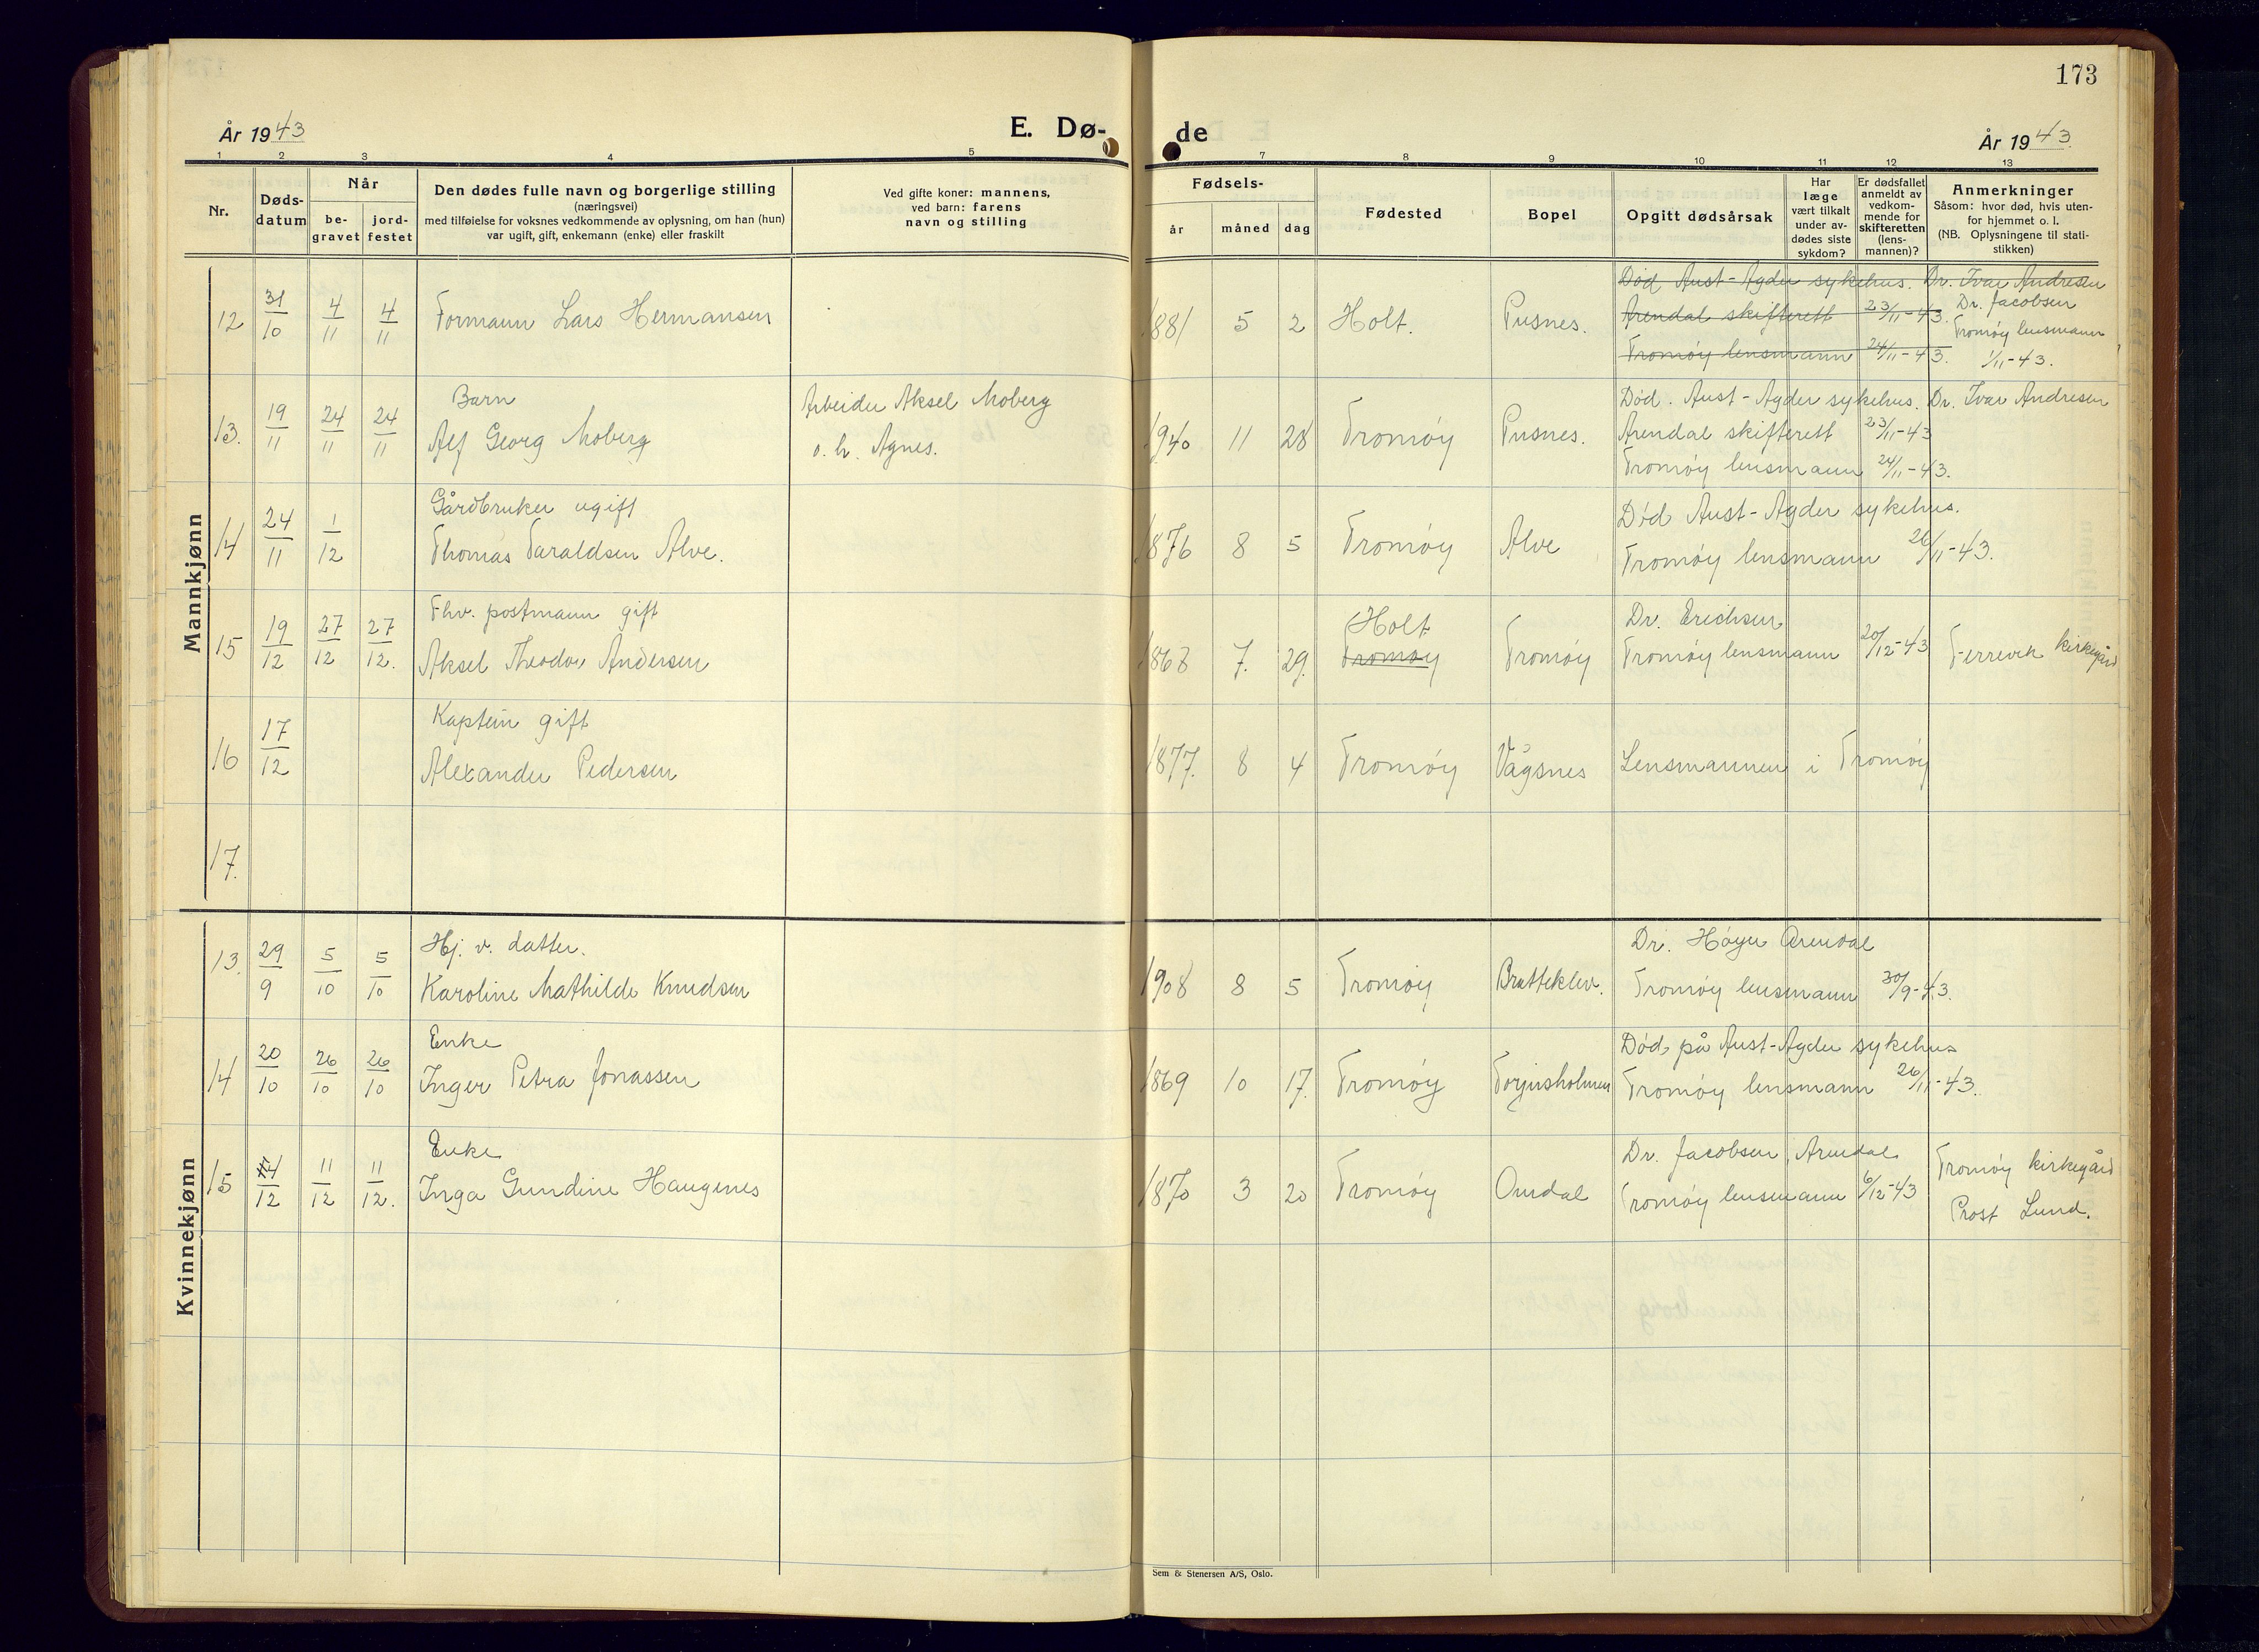 173
År 1943
E. Dø-
de
År 1943.
1 2 3 4 5 7 8 9 10 11 12 13
Nr.
Døds-
datum
Når
be-
gravet
jord-
festet
Den dødes fulle navn og borgerlige stilling
(næringsvei)
med tilføielse for voksnes vedkommende av oplysning, om han (hun)
var ugift, gift, enkemann (enke) eller fraskilt
Ved gifte koner: mannens,
ved barn: farens
navn og stilling
Fødsels-
år måned dag
Fødested
Bopel
Opgitt dødsårsak
Har
læge
vært tilkalt
under av-
dødes siste
sykdom?
Er dødsfallet
anmeldt av
vedkom-
mende for
skifteretten
(lens-
mannen)?
Anmerkninger
Såsom: hvor død, hvis uten-
for hjemmet o. l.
(NB. Oplysningene til stati-
stikken)
Mannkjønn
12 31/10 4/11 4/11 Formann Lars Hermansen 1881 5 2 Holt. Pusnes.
Død Aust-Agder sykehus. Dr. Ivar Andresen
Arendal skifterett 23/11-43. Dr. Jacobsen
Tromøy lensmann
Tromøy lensmann 24/11-43. 1/11-43.
Barn
13. 19/11 24/11 24/11 Alf Georg Moberg
Arbeider Aksel Moberg
o. h. Agnes.
1940 11 28 Tromøy Pusnes.
Død. Aust-Agder sykehus. Dr. Ivar Andresen
Arendal skifterett 23/11-43
Tromøy lensmann 24/11-43.
Gårdbruker ugift
14 24/11 1/12 Thomas Taraldsen Alve. 1876 8 5 Tromøy Alve
Død Aust-Agder sykehus.
Tromøy lensmann 26/11-43.
Fhv. postmann gift
15 19/12 27/12 27/12. Aksel Theodor Andersen 1868 7. 29.
Holt
Tromøy Tromøy
Dr. Erichsen
Tromøy lensmann 20/12-43 Færevik kirkegård
Kaptein gift
16 17/12 Alexander Pedersen 1877. 8 4 Tromøy Vågsnes Lensmannen i Tromøy
17.
Kvinnekjønn
Hj. v. datter.
13. 29/9 5/10 5/10 Karoline Mathilde Knudsen 1908 8 5 Tromøy Bratteklev.
Dr. Høyer Arendal
Tromøy lensmann 30/9-43.
Enke
14 20/10 26/10 26/10 Inger Petra Jonassen 1869 10 17. Tromøy Torjusholmen
Død på Aust-Agder sykehus
Tromøy lensmann 26/11-43.
Enke
15 4/12 11/12 11/12. Inga Gundine Haugenes 1870 3 20 Tromøy Omdal
Dr. Jacobsen, Arendal
Tromøy lensmann 6/12-43
Tromøy kirkegård
Prost Lund.
Sem & Stenersen A/S, Oslo.